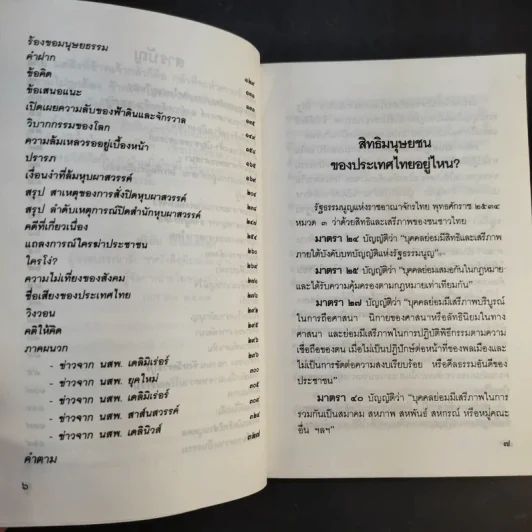 ร้องขอมนุษยธรรม
คำฝาก
ข้อคิด
ข้อเสนอแนะ
เปิดเผยความลับของฟ้าดินและจักรวาล
วิบากกรรมของโลก
ความล้มเหลวรออยู่เบื้องหน้า
ปรารภ
เงื่อนงำที่ล้มหุบผาสวรรค์
สรุป สาเหตุของการสั่งปิดหุบผาสวรรค์
สรุป ลำดับเหตุการณ์ปิดสำนักหุบผาสวรรค์
คดีที่เกี่ยวเนื่อง
แถลงการณ์ใครฆ่าประชาชน
ใครโง่?
ความไม่เที่ยงของสังคม
ชื่อเสียงของประเทศไทย
วิงวอน
คติให้คิด
ภาคผนวก
- ข่าวจาก นสพ. เดลิมิเร่อร์
- ข่าวจาก นสพ. ยุคใหม่ ๓๐๐
- ข่าวจาก นสพ. เดลิมิเร่อร์
- ข่าวจาก นสพ. สาส์นสวรรค์
- ข่าวจาก นสพ. เดลินิวส์
คำตาม
๖
สิทธิมนุษยชน
ของประเทศไทยอยู่ไหน?
รัฐธรรมนูญแห่งราชอาณาจักรไทย พุทธศักราช ๒๕๓๔
หมวด ๓ ว่าด้วยสิทธิและเสรีภาพของชนชาวไทย
มาตรา ๒๔ บัญญัติว่า “บุคคลย่อมมีสิทธิและเสรีภาพ
ภายใต้บังคับบทบัญญัติแห่งรัฐธรรมนูญ”
มาตรา ๒๕ บัญญัติว่า “บุคคลย่อมเสมอกันในกฎหมาย
และได้รับความคุ้มครองตามกฎหมายเท่าเทียมกัน”
มาตรา ๒๗ บัญญัติว่า “บุคคลย่อมมีเสรีภาพบริบูรณ์
ในการถือศาสนา นิกายของศาสนาหรือลัทธินิยมในทาง
ศาสนา และย่อมมีเสรีภาพในการปฏิบัติพิธีกรรมตามความ
เชื่อถือของตน เมื่อไม่เป็นปฏิปักษ์ต่อหน้าที่ของพลเมืองและ
ไม่เป็นการขัดต่อความสงบเรียบร้อย หรือศีลธรรมอันดีของ
ประชาชน”
มาตรา ๔๐ บัญญัติว่า “บุคคลย่อมมีเสรีภาพในการ
รวมกันเป็นสมาคม สหภาพ สหพันธ์ สหกรณ์ หรือหมู่คณะ
อื่น ฯลฯ”
๗